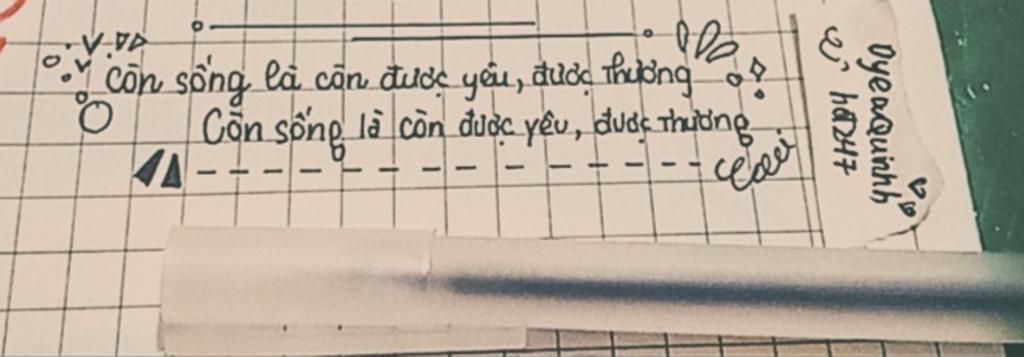 Còn sống là còn được yêu, được thương
Còn sống là còn được yêu, được thương
DyeaQuinhh